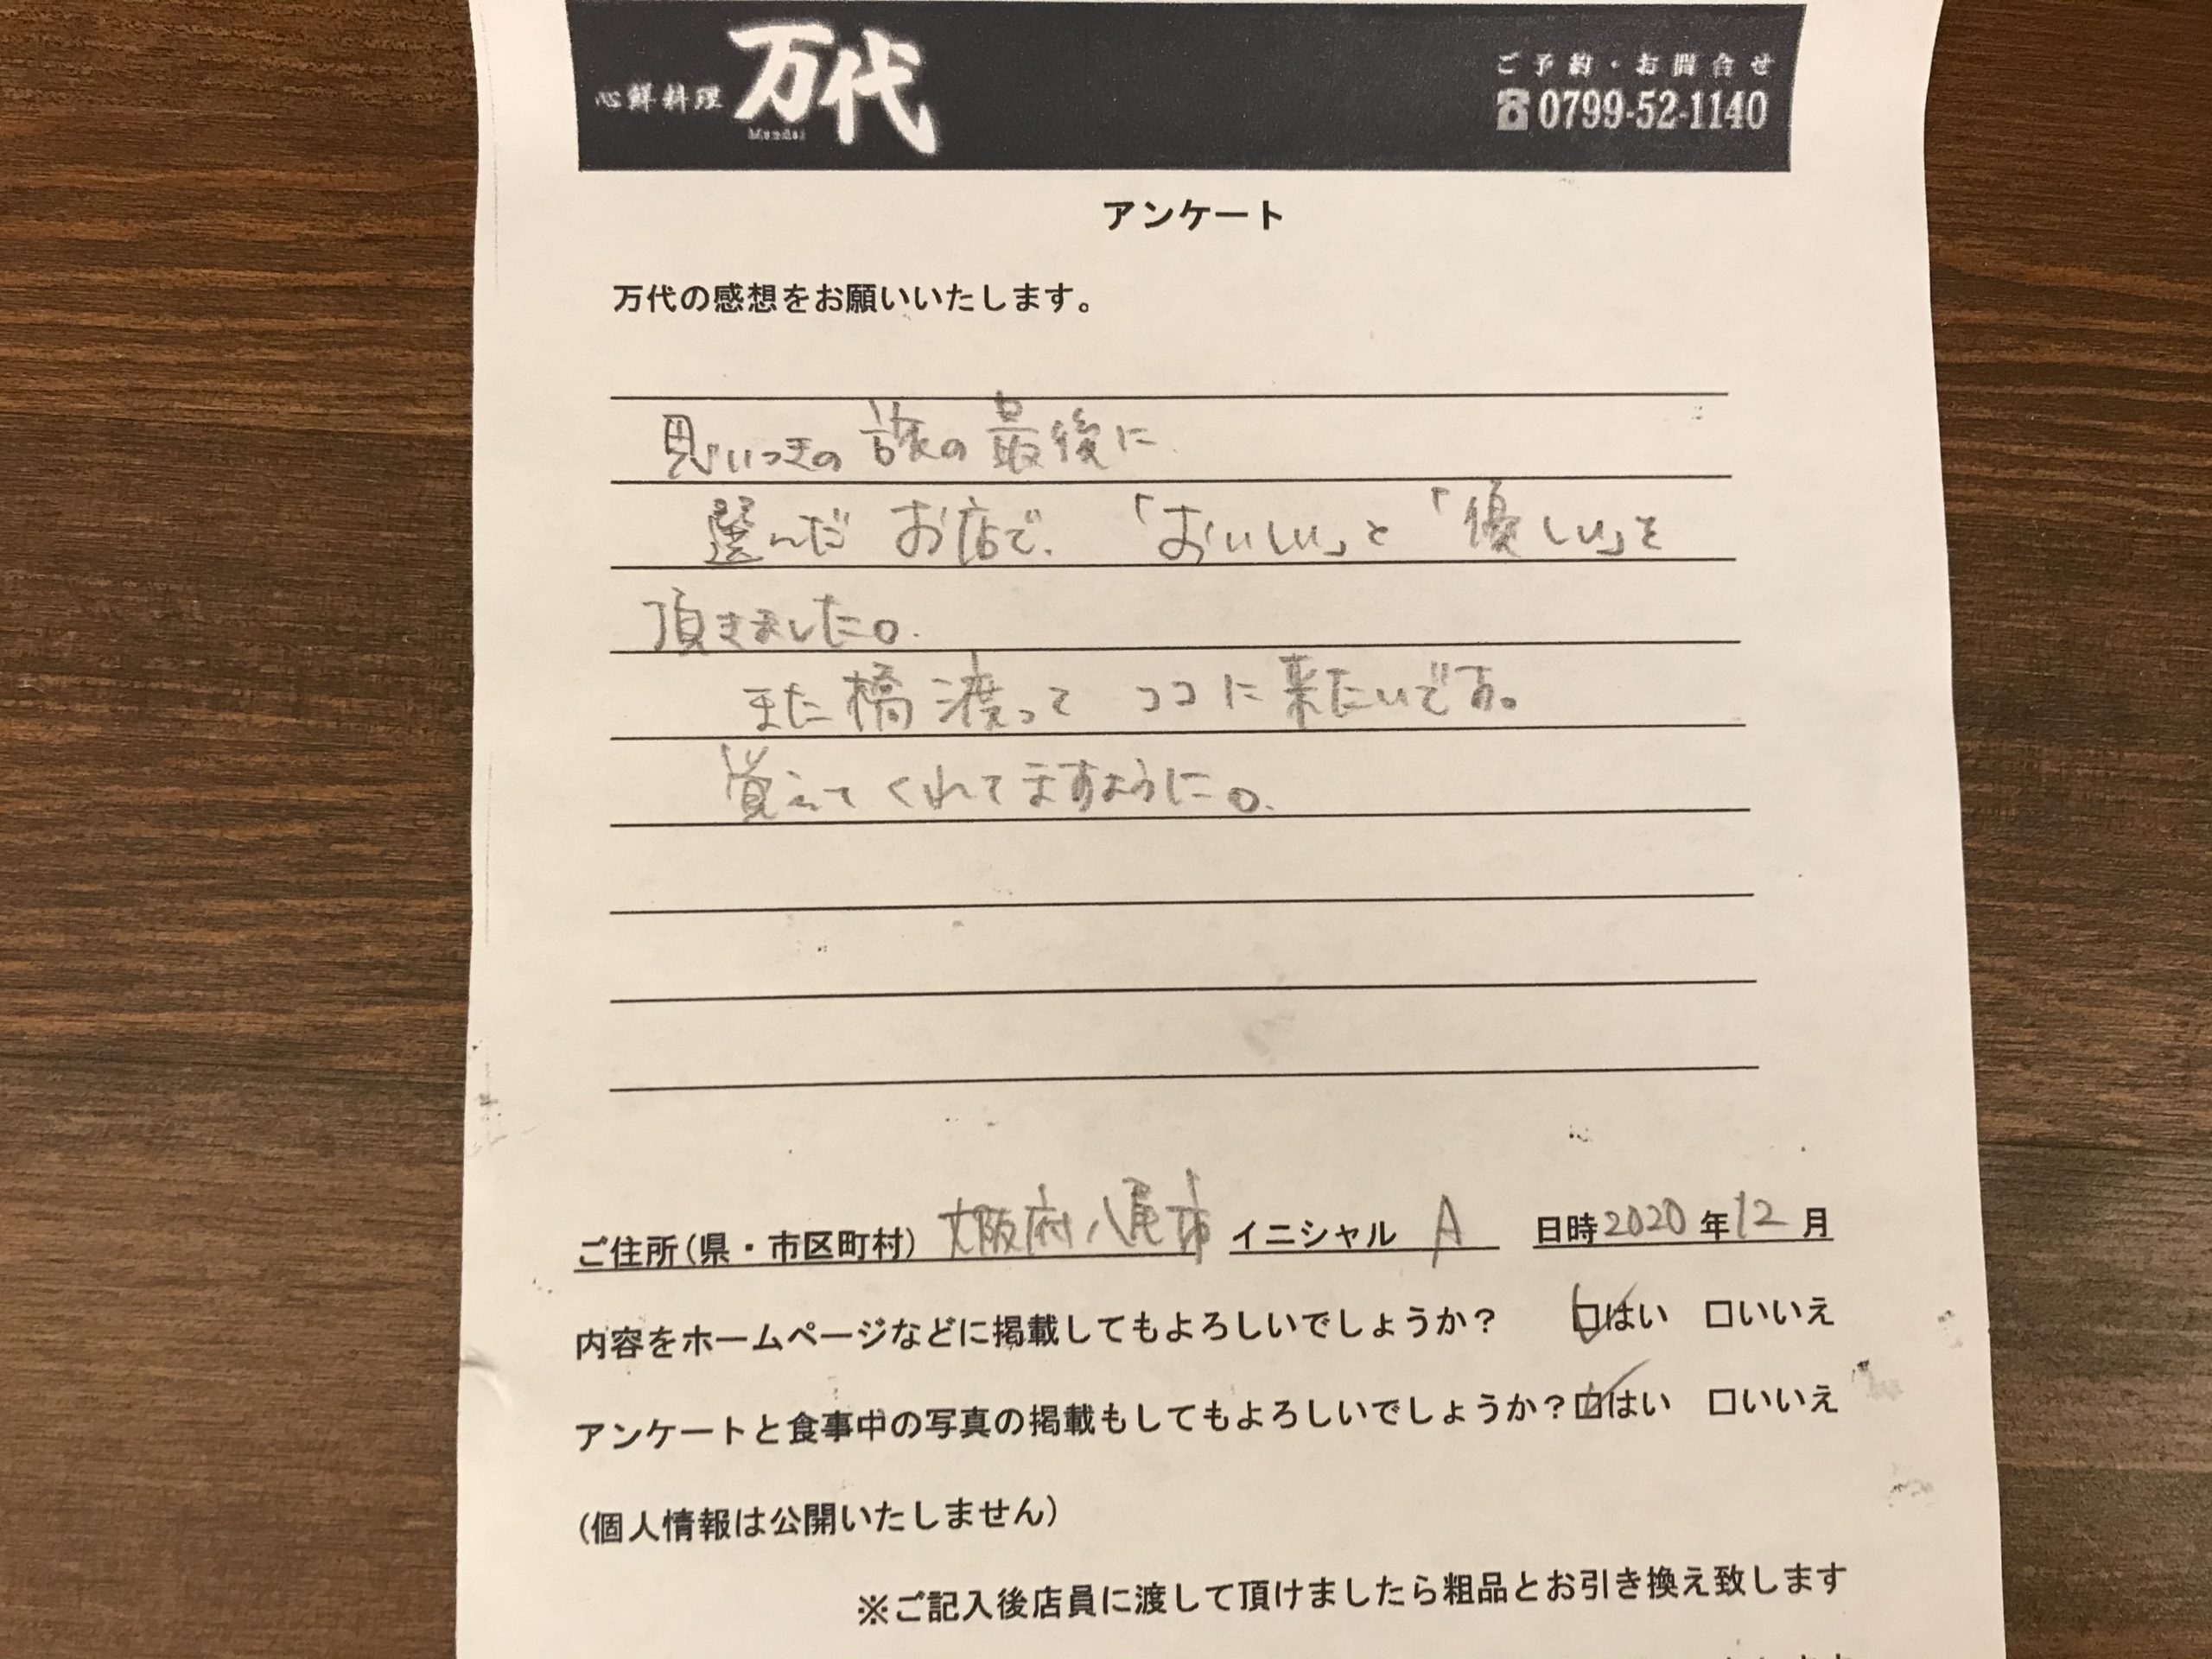 心鮮料理 万代
Mandai
ご予約・お問合せ
☎0799-52-1140
アンケート
万代の感想をお願いいたします。
思いつきの旅の最後に
選んだ お店で、「おいしい」と「優しい」を
頂きました。
また橋渡って ココに来たいです。
覚えてくれてますように。
ご住所(県・市区町村) 大阪府八尾市 イニシャル A 日時2020年12月
内容をホームページなどに掲載してもよろしいでしょうか? ☑はい □いいえ
アンケートと食事中の写真の掲載もしてもよろしいでしょうか?☑はい □いいえ
(個人情報は公開いたしません)
※ご記入後店員に渡して頂けましたら粗品とお引き換え致します